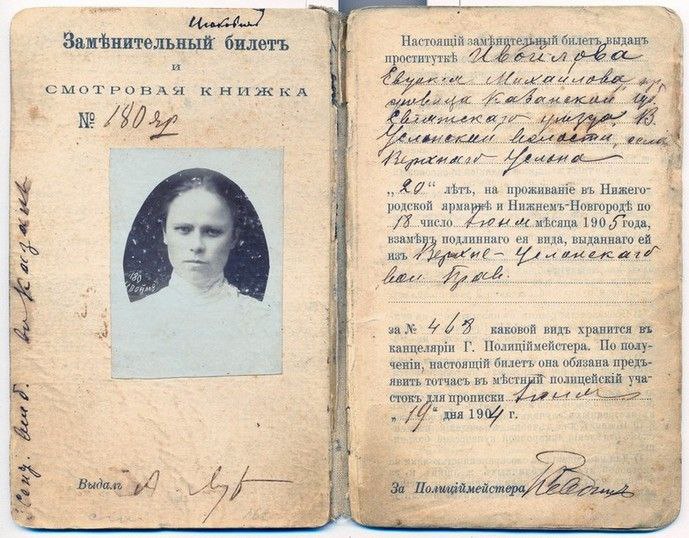 Замѣнительный билетъ
и
СМОТРОВАЯ КНИЖКА
№ 180 яр
180
Выдалъ
въ Казань
Настоящій замѣнительный билетъ выданъ
проституткѣ Ивойлова
Евдокія Михайлова, кр.
Казанской губ.
Свіяжскаго уѣзда, В.
Услонской волости, села
Верхняго Услона
„20“ лѣтъ, на проживаніе въ Нижего-
родской ярмаркѣ и Нижнемъ-Новгородѣ по
18 число іюня мѣсяца 1905 года,
взамѣнъ подлиннаго ея вида, выданнаго ей
изъ Верхне-Услонскаго
вол. Прав.
за № 468 каковой видъ хранится въ
канцеляріи Г. Полиціймейстера. По полу-
ченіи, настоящій билетъ она обязана предъ-
явить тотчасъ въ мѣстный полицейскій уча-
стокъ для прописки іюня
„19“ дня 1904 г.
За Полиціймейстера